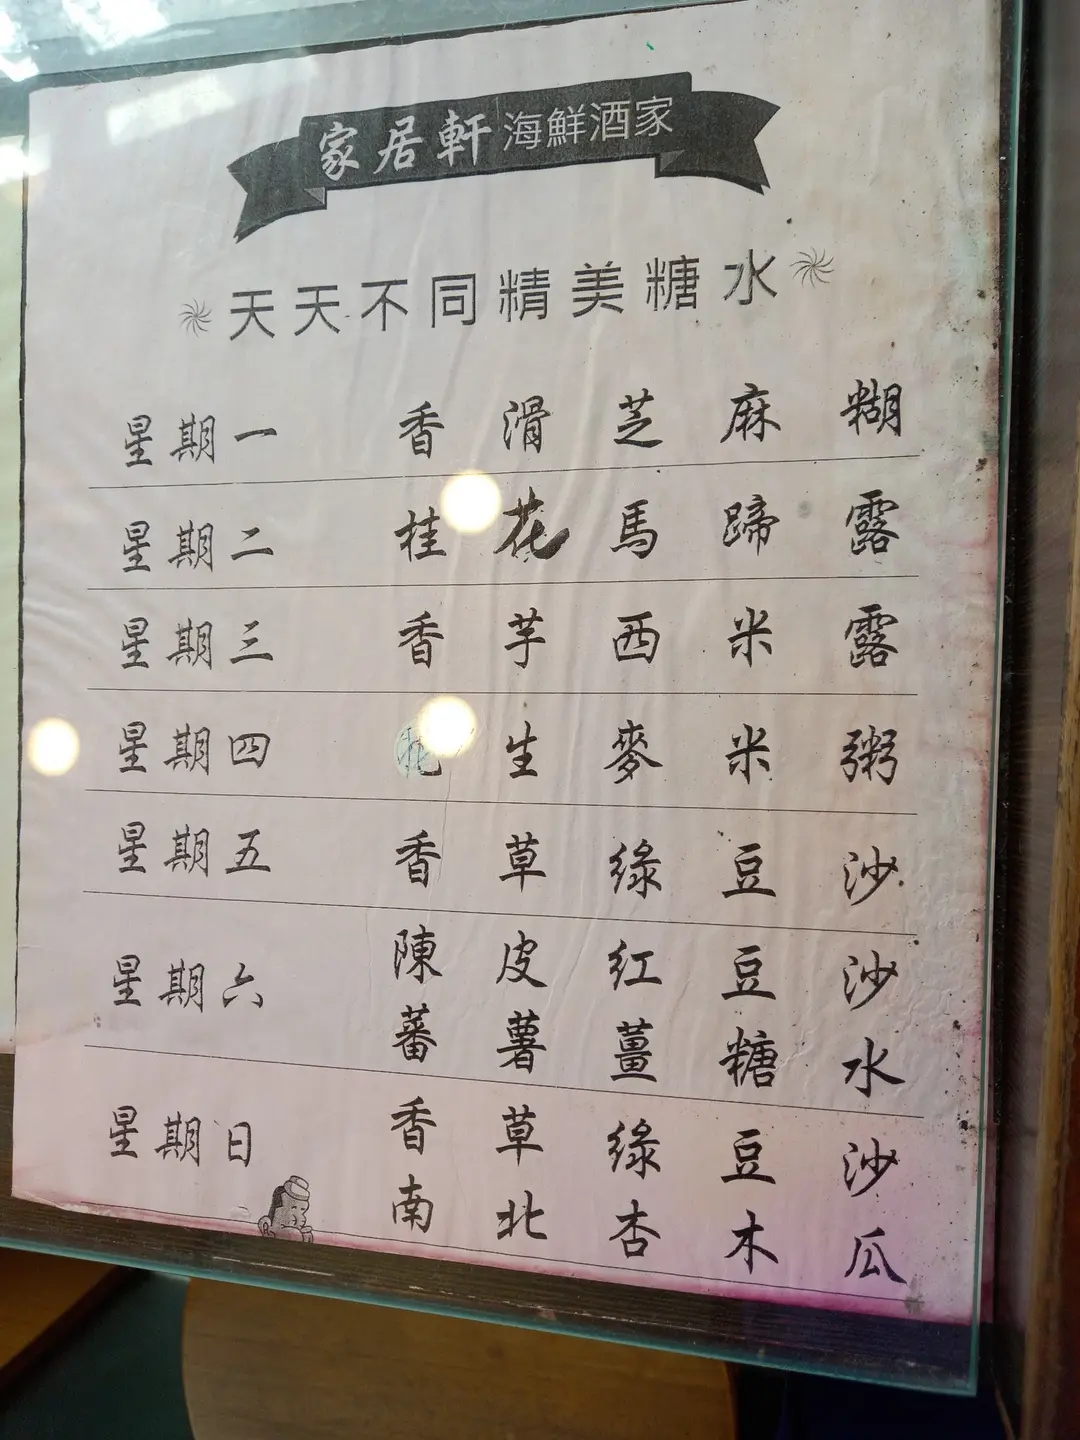 家居軒海鮮酒家
天天不同精美糖水
星期一 香滑芝麻糊
星期二 桂花馬蹄露
星期三 香芋西米露
星期四 花生麥米粥
星期五 香草綠豆沙
星期六 陳皮紅豆沙
蕃薯薑糖水
星期日 香草綠豆沙
南北杏木瓜